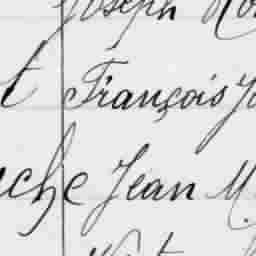 Joseph
t François Jo
uche Jean M.